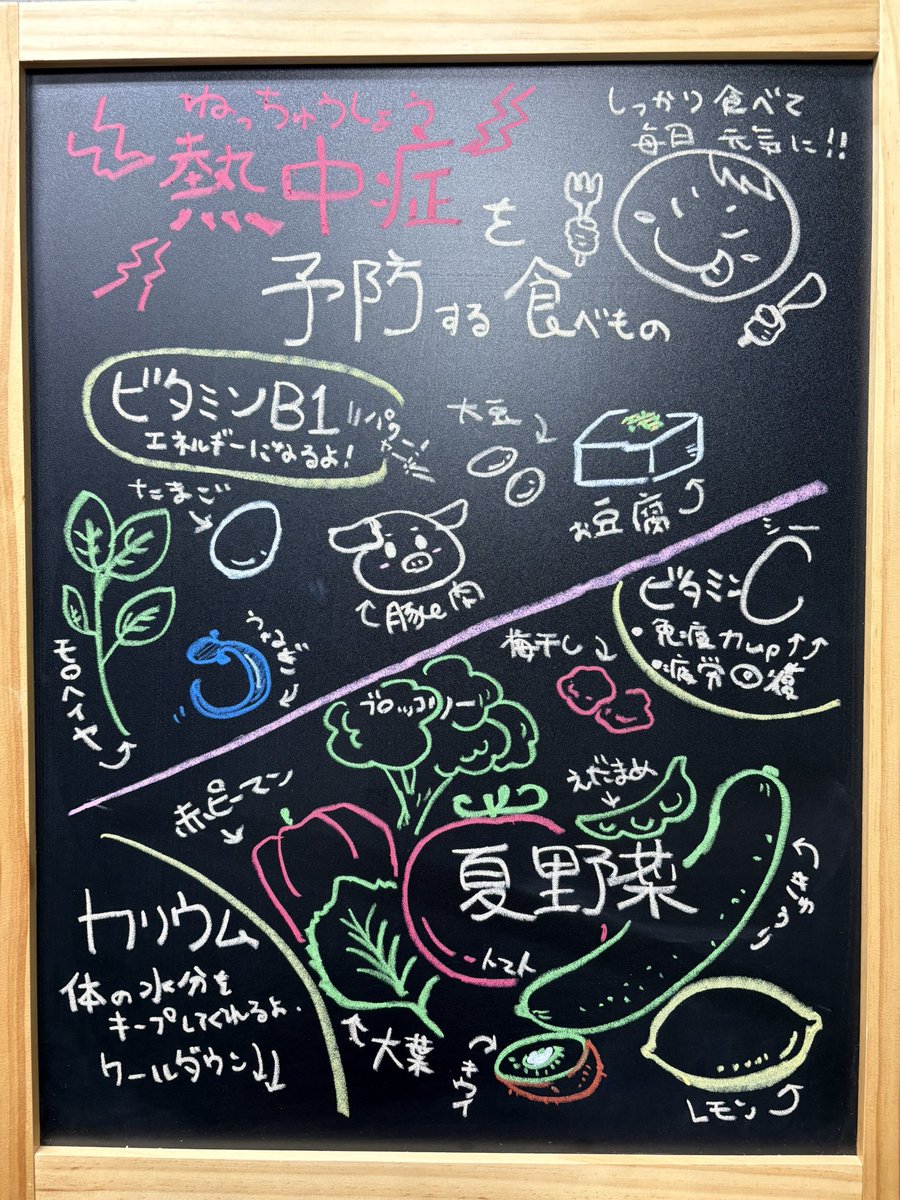 ねっちゅうしょう
熱中症を
予防する食べもの
しっかり食べて
毎日元気に!!
ビタミンB1
エネルギーになるよ!
パワー!
大豆
お豆腐
たまご
豚肉
モロヘイヤ
うなぎ
シー
ビタミンC
・免疫力up↑↑
・疲労回復
梅干し
ブロッコリー
えだまめ
赤ピーマン
夏野菜
トマト
きゅうり
カリウム
体の水分を
キープしてくれるよ.
クールダウン↓↓
大葉
キウイ
レモン